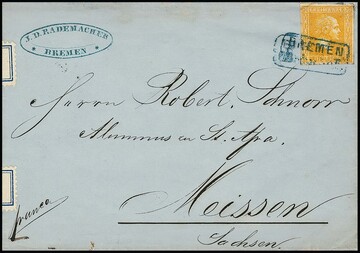 J. D. RADEMACHER
BREMEN
BREMEN
Herrn Robert Schnorr
Alumnus in St. Afra.
Meissen
franco
Sachsen.